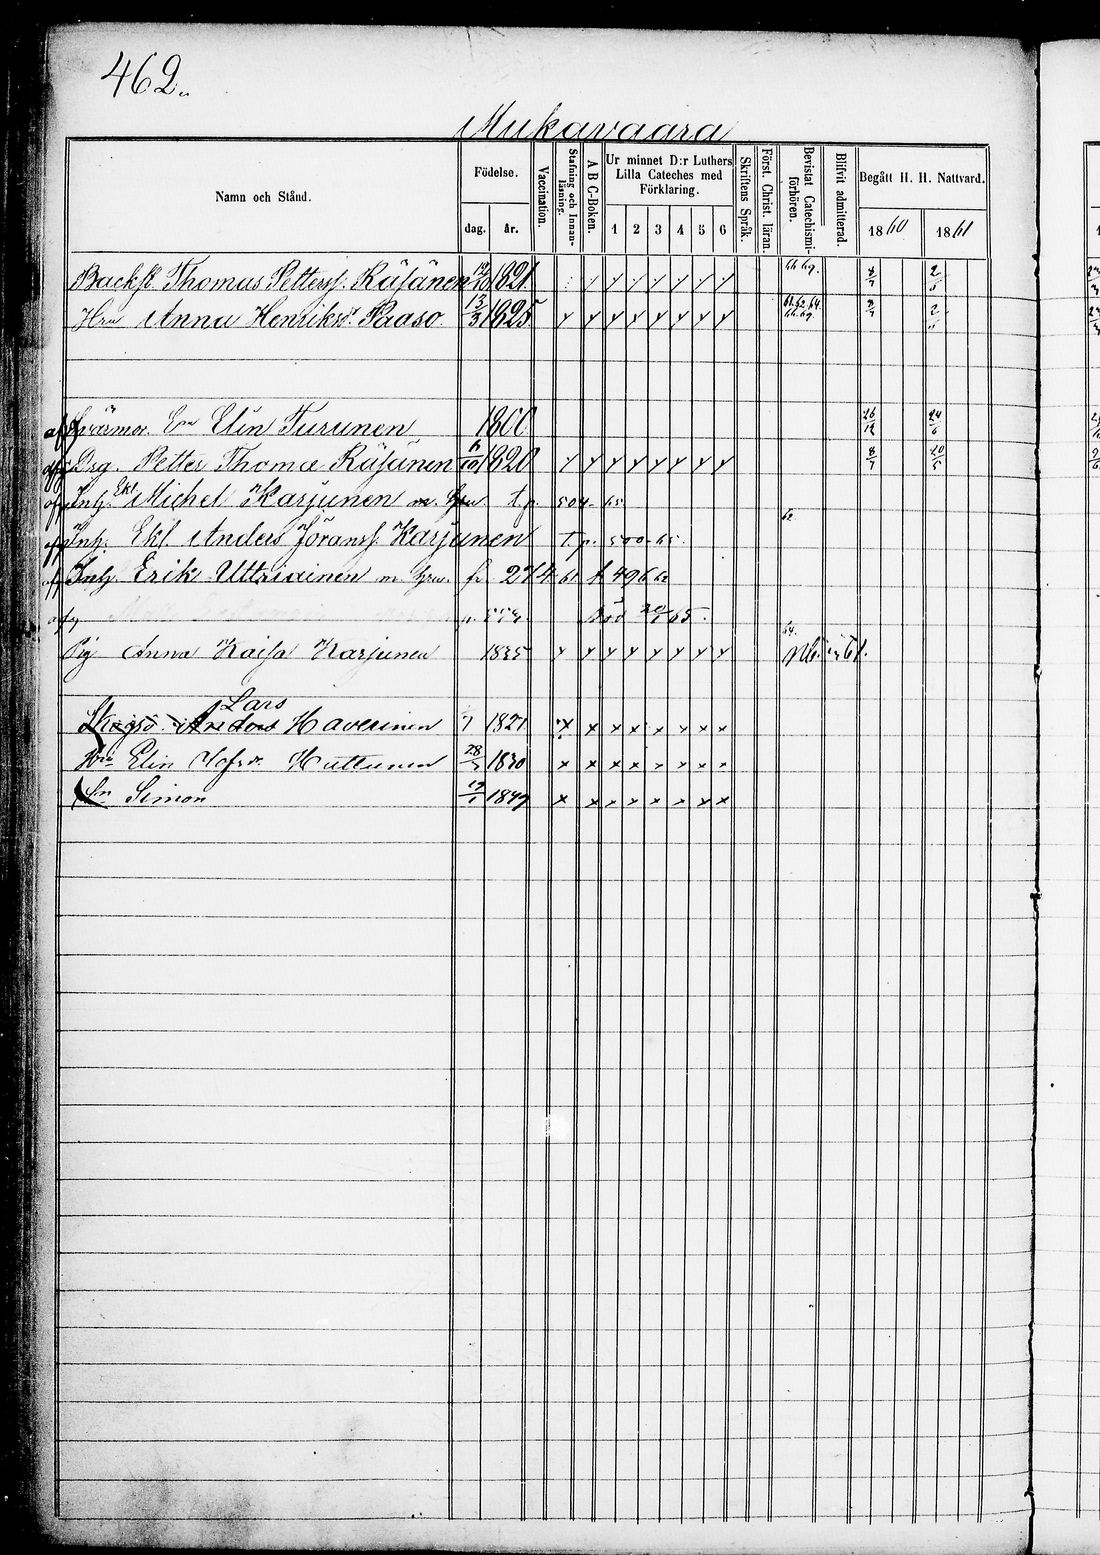 462.
Mukavaara
Namn och Stånd.
Födelse.
dag.
år.
Vaccination.
Stafning och Innanläsning.
A B C-Boken.
Ur minnet D:r Luthers Lilla Cateches med Förklaring.
1 2 3 4 5 6
Skriftens Språk.
Först. Christ. läran.
Bevistat Catechismiförhören.
Blifvit admitterad.
Begått H. H. Nattvard.
1860
1861
Thomas Petterss. Räisänen 1821 66 69. 8/7 2/5
Hru Anna Henriksdr Paaso. 13/3 1825 8/7 2
Svärmor Elin Turunen 1800 26/12 24/6
Drg. Petter Thomæ Räisänen 6/10 1820 8/7 20/5
Inh. Michel Karjunen m. hru. t. p. 504 - 65
62
Inh. Anders Jöranss. Karjunen T. p. 500 - 65.
Inh. Erik m hru. fr 274 61 t. 496 62
p. 559. Död 65.
64.
Pig Anna Kaisa Karjunen 1835 x x x x x x x x
Lars
Anders Haverinen 7 1821 x x x x x x x x
Hru Elin Huttunen 28 1830 x x x x x x x x
Sn Simon 19/1 1849 x x x x x x x x